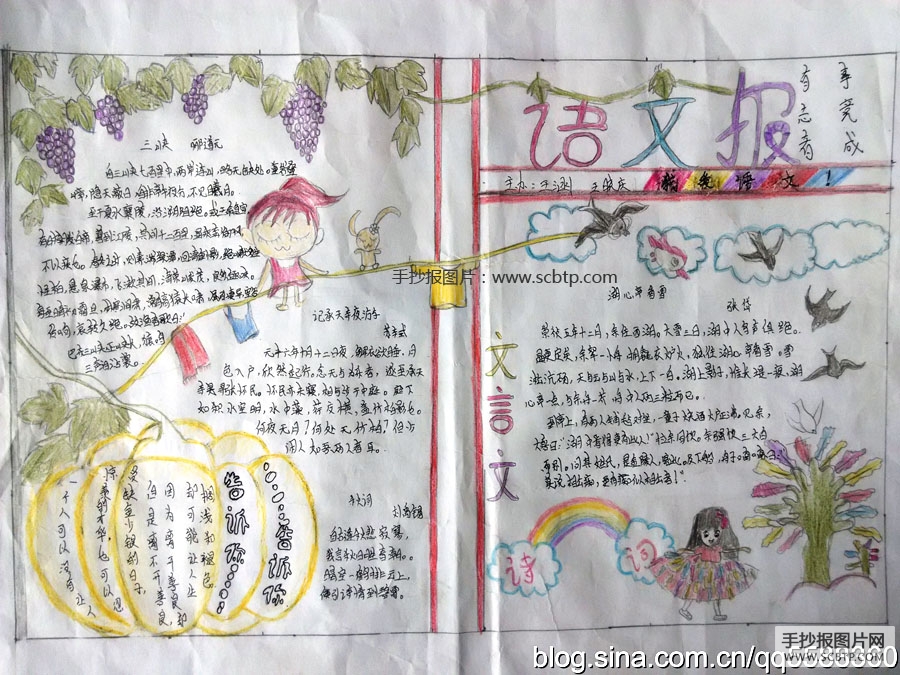 语文报
有志者
事竟成
主办：王涵 王
我爱语文！
三峡 郦道元
自三峡七百里中，两岸连山，略无阙处。重岩叠
嶂，隐天蔽日，自非亭午夜分，不见曦月。
至于夏水襄陵，沿溯阻绝。或王命急宣，
有时朝发白帝，暮到江陵，其间千二百里，虽乘奔御风
不以疾也。春冬之时，则素湍绿潭，回清倒影，绝巘多生
怪柏，悬泉瀑布，飞漱其间，清荣峻茂，良多趣味。
每至晴初霜旦，林寒涧肃，常有高猿长啸，属引凄异，空谷
传响，哀转久绝。故渔者歌曰：
巴东三峡巫峡长，猿鸣
三声泪沾裳。
手抄报图片：www.scbtp.com
记承天寺夜游
苏轼
元丰六年十月十二日夜，解衣欲睡，月
色入户，欣然起行。念无与为乐者，遂至承天
寺寻张怀民。怀民亦未寝，相与步于中庭。庭下
如积水空明，水中藻、荇交横，盖竹柏影也。
何夜无月？何处无竹柏？但少
闲人如吾两人者耳。
秋词
刘禹锡
自古逢秋悲寂寥，
我言秋日胜春朝。
晴空一鹤排云上，
便引诗情到碧霄。
……告诉你
告诉你……
文言文
湖心亭看雪
张岱
崇祯五年十二月，余住西湖。大雪三日，湖中人鸟声俱绝。
是日更定矣，余拏一小舟，拥毳衣炉火，独往湖心亭看雪。雾
凇沆砀，天与云与山与水，上下一白。湖上影子，惟长堤一痕，湖
心亭一点，与余舟一芥，舟中人两三粒而已。
到亭上，有两人铺毡对坐，一童子烧酒炉正沸。见余，
大喜曰：“湖中焉得更有此人！”拉余同饮。余强饮三大白
而别。问其姓氏，是金陵人，客此。及下船，舟子喃喃曰：
“莫说相公痴，更有痴似相公者！”
诗
词
手抄报图片网
WWW.SCBTP.COM